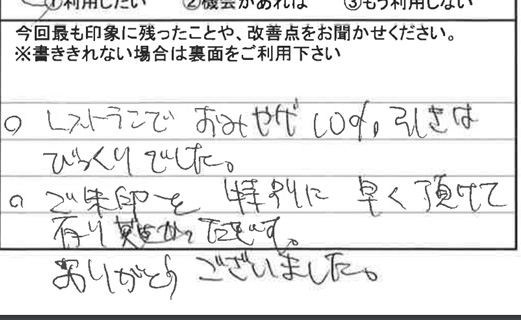 ①利用したい ②機会があれば ③もう利用しない
今回最も印象に残ったことや、改善点をお聞かせください。
※書ききれない場合は裏面をご利用下さい
○ レストランで おみやげ 10%引きは
びっくりでした。
○ ご朱印を 特別に 早く頂けて
有り難かったです。
ありがとうございました。